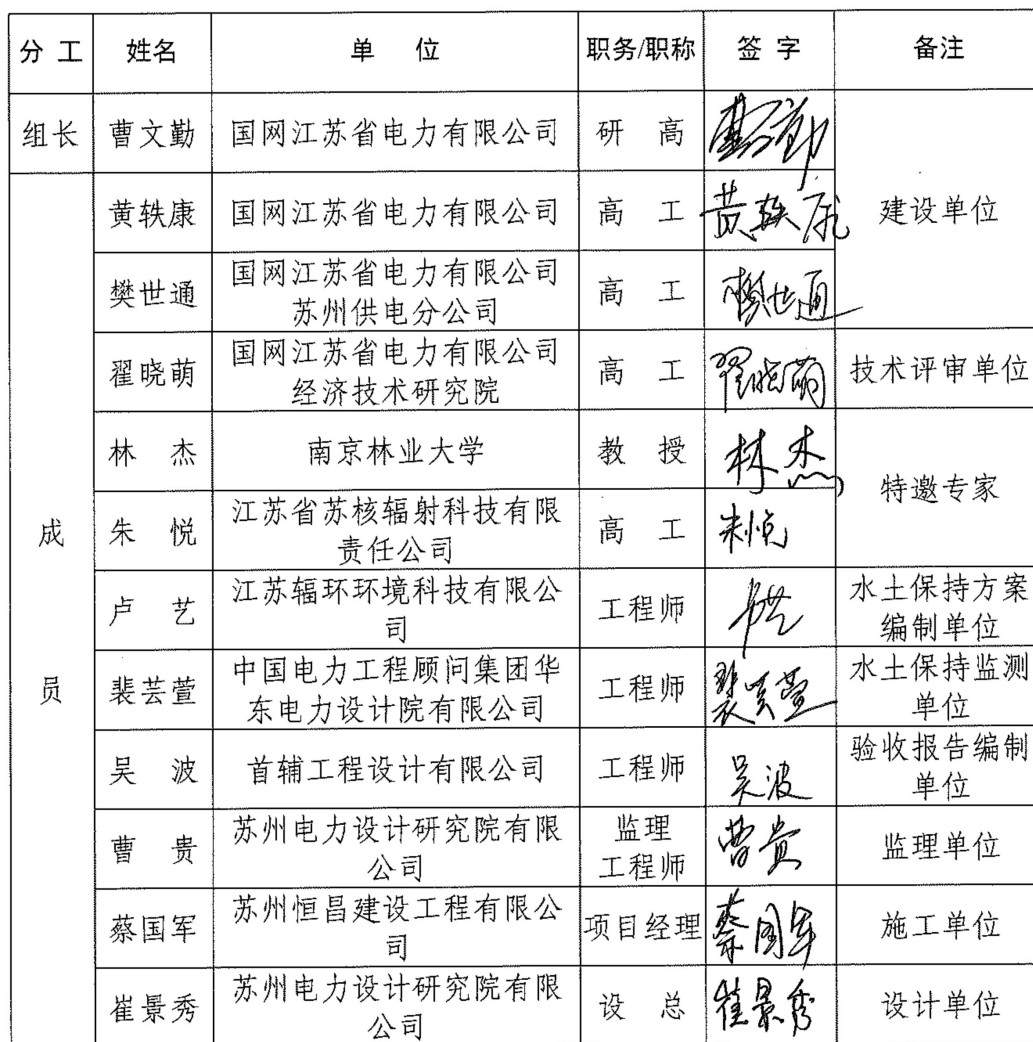 分 工 姓名 单 位 职务/职称 签 字 备注
组长 曹文勤 国网江苏省电力有限公司 研 高 曹文勤 建设单位
成员
黄轶康 国网江苏省电力有限公司 高 工 黄轶康
樊世通 国网江苏省电力有限公司
苏州供电分公司 高 工 樊世通
翟晓萌 国网江苏省电力有限公司
经济技术研究院 高 工 翟晓萌 技术评审单位
林 杰 南京林业大学 教 授 林杰 特邀专家
朱 悦 江苏省苏核辐射科技有限
责任公司 高 工 朱悦
卢 艺 江苏辐环环境科技有限公
司 工程师 卢艺 水土保持方案
编制单位
裴芸萱 中国电力工程顾问集团华
东电力设计院有限公司 工程师 裴芸萱 水土保持监测
单位
吴 波 首辅工程设计有限公司 工程师 吴波 验收报告编制
单位
曹 贵 苏州电力设计研究院有限
公司 监理
工程师 曹贵 监理单位
蔡国军 苏州恒昌建设工程有限公
司 项目经理 蔡国军 施工单位
崔景秀 苏州电力设计研究院有限
公司 设 总 崔景秀 设计单位